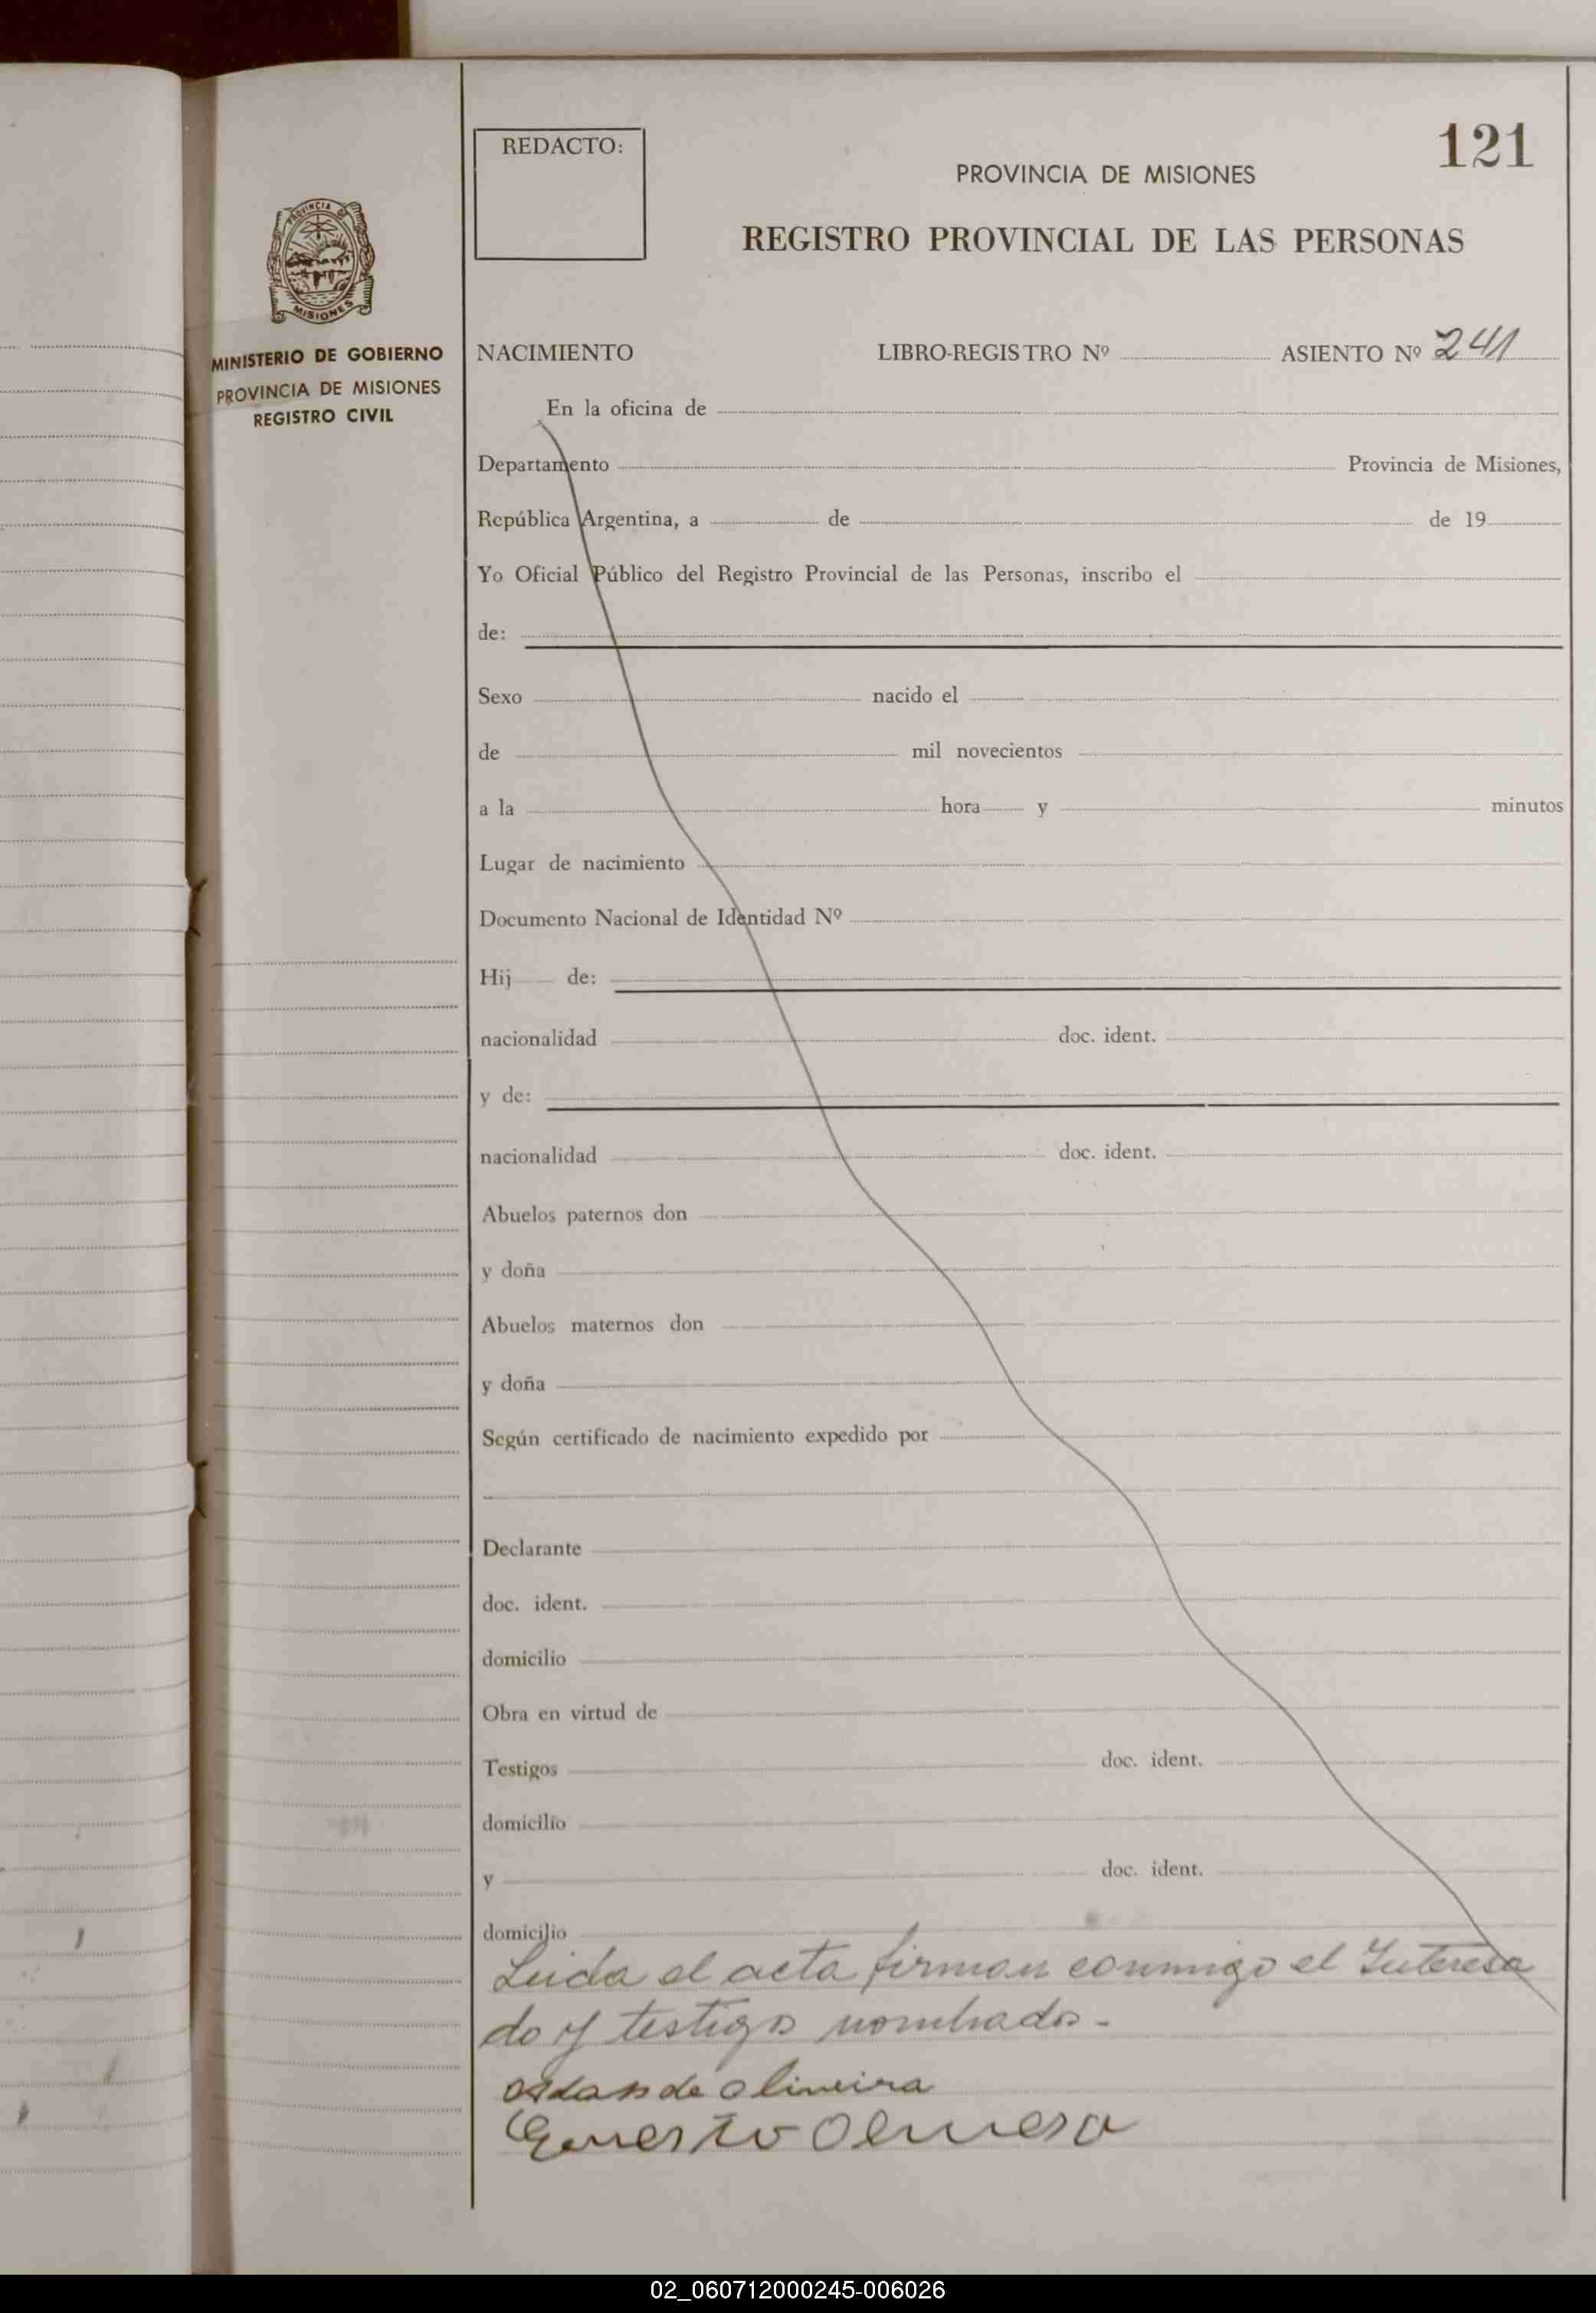 REDACTO:
121
PROVINCIA DE MISIONES
REGISTRO PROVINCIAL DE LAS PERSONAS
PROVINCIA DE
MISIONES
MINISTERIO DE GOBIERNO
PROVINCIA DE MISIONES
REGISTRO CIVIL
NACIMIENTO LIBRO-REGISTRO Nº ASIENTO Nº 241
En la oficina de
Departamento Provincia de Misiones,
República Argentina, a de de 19
Yo Oficial Público del Registro Provincial de las Personas, inscribo el
de:
Sexo nacido el
de mil novecientos
a la hora y minutos
Lugar de nacimiento
Documento Nacional de Identidad Nº
Hij de:
nacionalidad doc. ident.
y de:
nacionalidad doc. ident.
Abuelos paternos don
y doña
Abuelos maternos don
y doña
Según certificado de nacimiento expedido por
Declarante
doc. ident.
domicilio
Obra en virtud de
Testigos doc. ident.
domicilio
y doc. ident.
domicilio
Leida el acta firman conmigo el Interesa
do y testigos nombrados.-
de oliveira
02_060712000245-006026